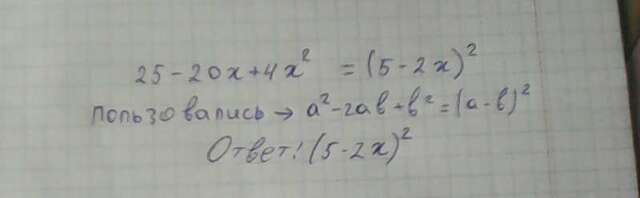 25-20x+4x² = (5-2x)²
пользовались → a²-2ab+b² = (a-b)²
Ответ! (5-2x)²